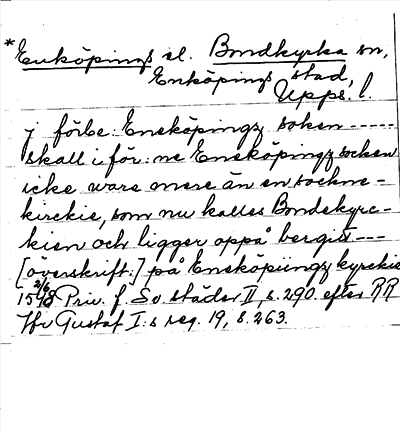 *Enköpings el. Bondkyrka sn,
Enköpings stad,
Upps. l.
j förbe: Eneköpingz soken -----
skall i för:ne Eneköpingz socken
icke ware mere än en sochne-
kirckie, som nu kalles Bondekyrc-
kien och ligger oppå bergit ---
[överskrift:] på Eneköpiingz kyrckie
2/6
1548 Priv. f. Sv. städer II, s. 290. efter RR
Gustaf I:s reg. 19, s. 263.